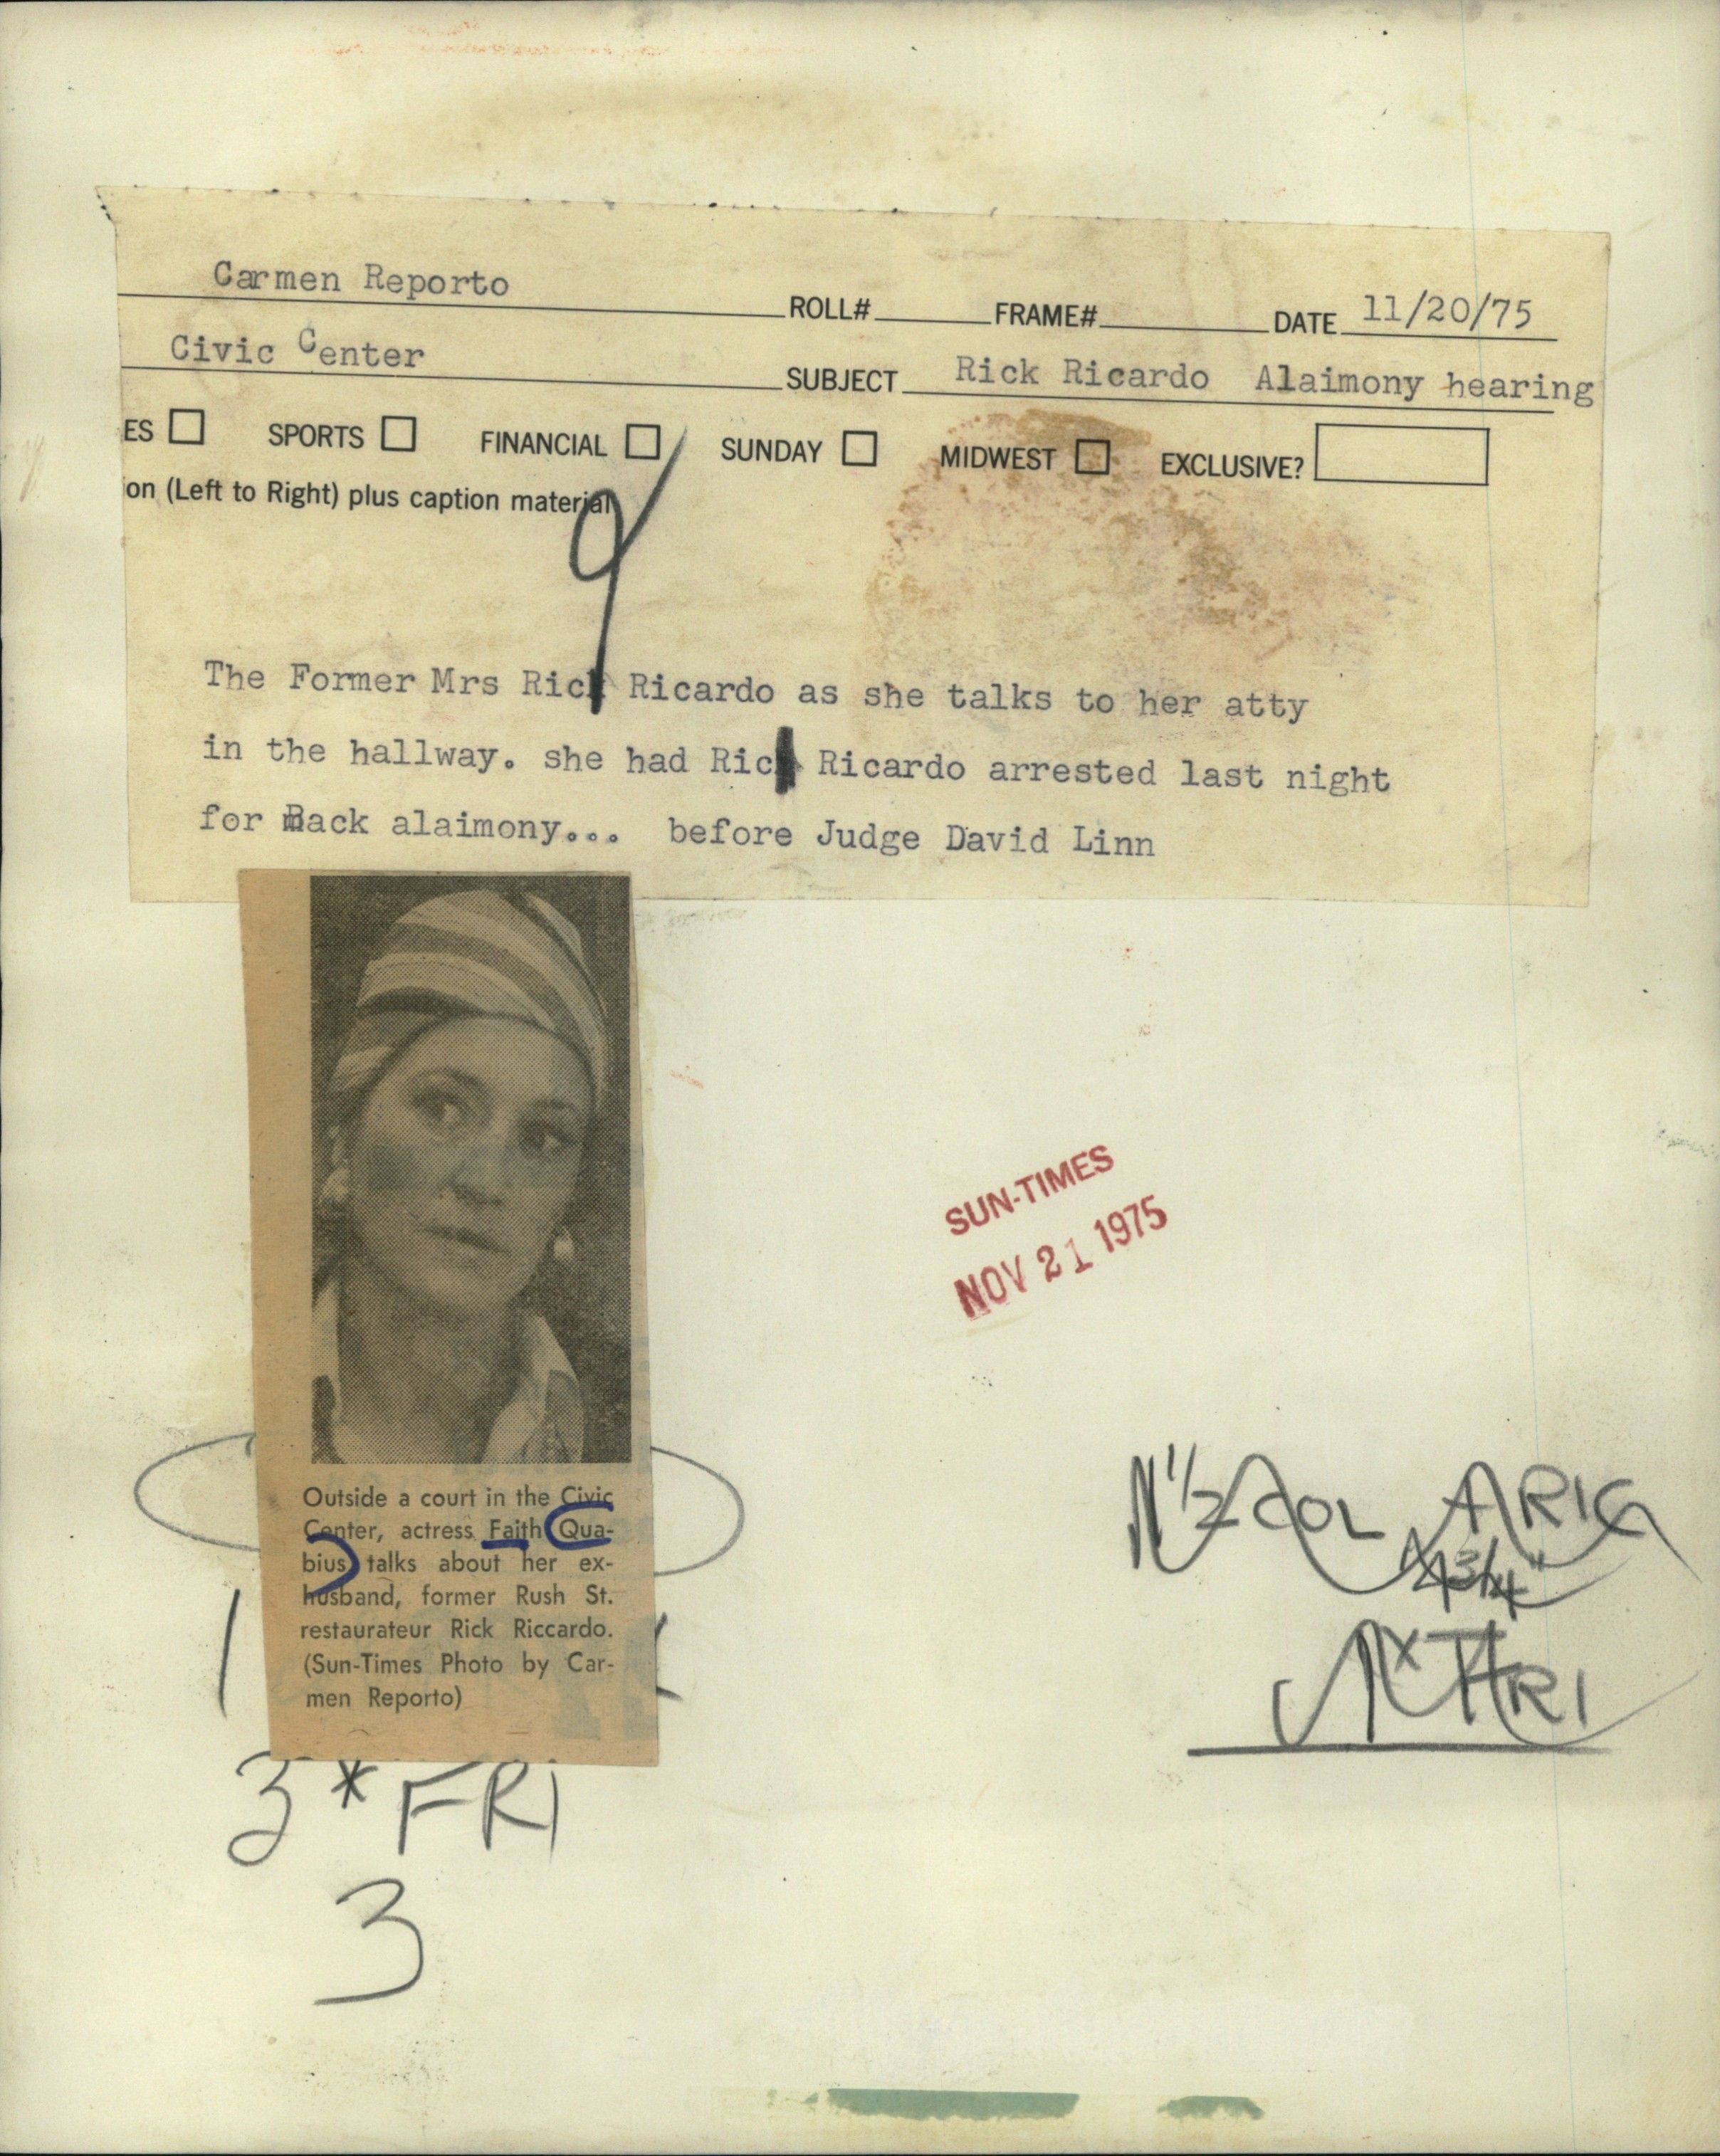 Carmen Reporto ROLL# FRAME# DATE 11/20/75
Civic Center SUBJECT Rick Ricardo Alaimony hearing
ES SPORTS FINANCIAL SUNDAY MIDWEST EXCLUSIVE?
on (Left to Right) plus caption material
The Former Mrs Rick Ricardo as she talks to her atty
in the hallway. she had Rick Ricardo arrested last night
for Back alaimony... before Judge David Linn
SUN-TIMES
NOV 21 1975
Outside a court in the Civic
Center, actress Faith Qua-
bius talks about her ex-
husband, former Rush St.
restaurateur Rick Riccardo.
(Sun-Times Photo by Car-
men Reporto)
1/2 COL
4 3/4"
3* FRI
3